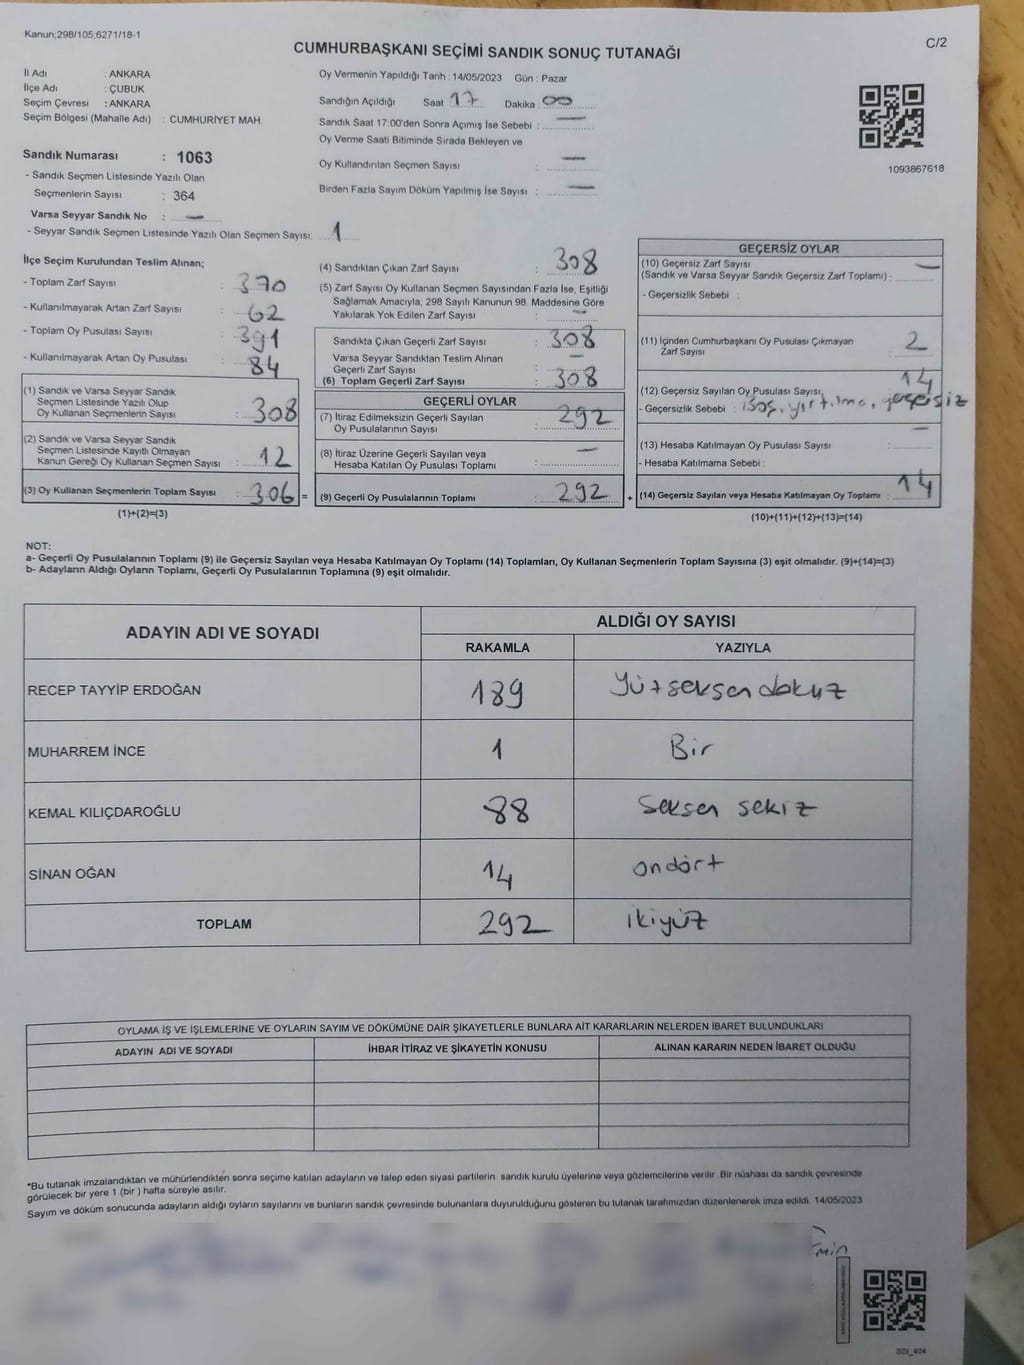 Kanun;298/105;6271/18-1
C/2
CUMHURBAŞKANI SEÇİMİ SANDIK SONUÇ TUTANAĞI
İl Adı : ANKARA
İlçe Adı : ÇUBUK
Seçim Çevresi : ANKARA
Seçim Bölgesi (Mahalle Adı) : CUMHURİYET MAH.
Sandık Numarası : 1063
- Sandık Seçmen Listesinde Yazılı Olan
Seçmenlerin Sayısı : 364
Varsa Seyyar Sandık No : —
- Seyyar Sandık Seçmen Listesinde Yazılı Olan Seçmen Sayısı: 1
Oy Vermenin Yapıldığı Tarih : 14/05/2023 Gün : Pazar
Sandığın Açıldığı Saat 17 Dakika : 00
Sandık Saat 17:00'den Sonra Açımış İse Sebebi : —
Oy Verme Saati Bitiminde Sırada Bekleyen ve
Oy Kullandırılan Seçmen Sayısı : —
Birden Fazla Sayım Döküm Yapılmış İse Sayısı : —
1093867618
İlçe Seçim Kurulundan Teslim Alınan;
- Toplam Zarf Sayısı : 370
- Kullanılmayarak Artan Zarf Sayısı : 62
- Toplam Oy Pusulası Sayısı : 391
- Kullanılmayarak Artan Oy Pusulası : 84
(1) Sandık ve Varsa Seyyar Sandık
Seçmen Listesinde Yazılı Olup
Oy Kullanan Seçmenlerin Sayısı : 308
(2) Sandık ve Varsa Seyyar Sandık
Seçmen Listesinde Kayıtlı Olmayan
Kanun Gereği Oy Kullanan Seçmen Sayısı : 12
(3) Oy Kullanan Seçmenlerin Toplam Sayısı : 306 =
(1)+(2)=(3)
(4) Sandıktan Çıkan Zarf Sayısı : 308
(5) Zarf Sayısı Oy Kullanan Seçmen Sayısından Fazla İse, Eşitliği
Sağlamak Amacıyla; 298 Sayılı Kanunun 98. Maddesine Göre
Yakılarak Yok Edilen Zarf Sayısı : —
Sandıkta Çıkan Geçerli Zarf Sayısı : 308
Varsa Seyyar Sandıktan Teslim Alınan
Geçerli Zarf Sayısı : —
(6) Toplam Geçerli Zarf Sayısı : 308
GEÇERLİ OYLAR
(7) İtiraz Edilmeksizin Geçerli Sayılan
Oy Pusulalarının Sayısı : 292
(8) İtiraz Üzerine Geçerli Sayılan veya
Hesaba Katılan Oy Pusulası Toplamı : —
(9) Geçerli Oy Pusulalarının Toplamı : 292 +
GEÇERSİZ OYLAR
(10) Geçersiz Zarf Sayısı —
(Sandık ve Varsa Seyyar Sandık Geçersiz Zarf Toplamı) :
- Geçersizlik Sebebi :
(11) İçinden Cumhurbaşkanı Oy Pusulası Çıkmayan
Zarf Sayısı : 2
(12) Geçersiz Sayılan Oy Pusulası Sayısı 14
- Geçersizlik Sebebi : Boş, yırtılma, geçersiz
(13) Hesaba Katılmayan Oy Pusulası Sayısı : —
- Hesaba Katılmama Sebebi :
(14) Geçersiz Sayılan veya Hesaba Katılmayan Oy Toplamı : 14
(10)+(11)+(12)+(13)=(14)
NOT:
a- Geçerli Oy Pusulalarının Toplamı (9) ile Geçersiz Sayılan veya Hesaba Katılmayan Oy Toplamı (14) Toplamları, Oy Kullanan Seçmenlerin Toplam Sayısına (3) eşit olmalıdır. (9)+(14)=(3)
b- Adayların Aldığı Oyların Toplamı, Geçerli Oy Pusulalarının Toplamına (9) eşit olmalıdır.
ADAYIN ADI VE SOYADI
ALDIĞI OY SAYISI
RAKAMLA YAZIYLA
RECEP TAYYİP ERDOĞAN 189 Yüzseksendokuz
MUHARREM İNCE 1 Bir
KEMAL KILIÇDAROĞLU 88 Seksen sekiz
SİNAN OĞAN 14 ondört
TOPLAM 292 ikiyüz
OYLAMA İŞ VE İŞLEMLERİNE VE OYLARIN SAYIM VE DÖKÜMÜNE DAİR ŞİKAYETLERLE BUNLARA AİT KARARLARIN NELERDEN İBARET BULUNDUKLARI
ADAYIN ADI VE SOYADI İHBAR İTİRAZ VE ŞİKAYETİN KONUSU ALINAN KARARIN NEDEN İBARET OLDUĞU
*Bu tutanak imzalandıktan ve mühürlendikten sonra seçime katılan adayların ve talep eden siyasi partilerin sandık kurulu üyelerine veya gözlemcilerine verilir .Bir nüshası da sandık çevresinde
görülecek bir yere 1 (bir ) hafta süreyle asılır.
Sayım ve döküm sonucunda adayların aldığı oyların sayılarını ve bunların sandık çevresinde bulunanlara duyurulduğunu gösteren bu tutanak tarafımızdan düzenlenerek imza edildi. 14/05/2023